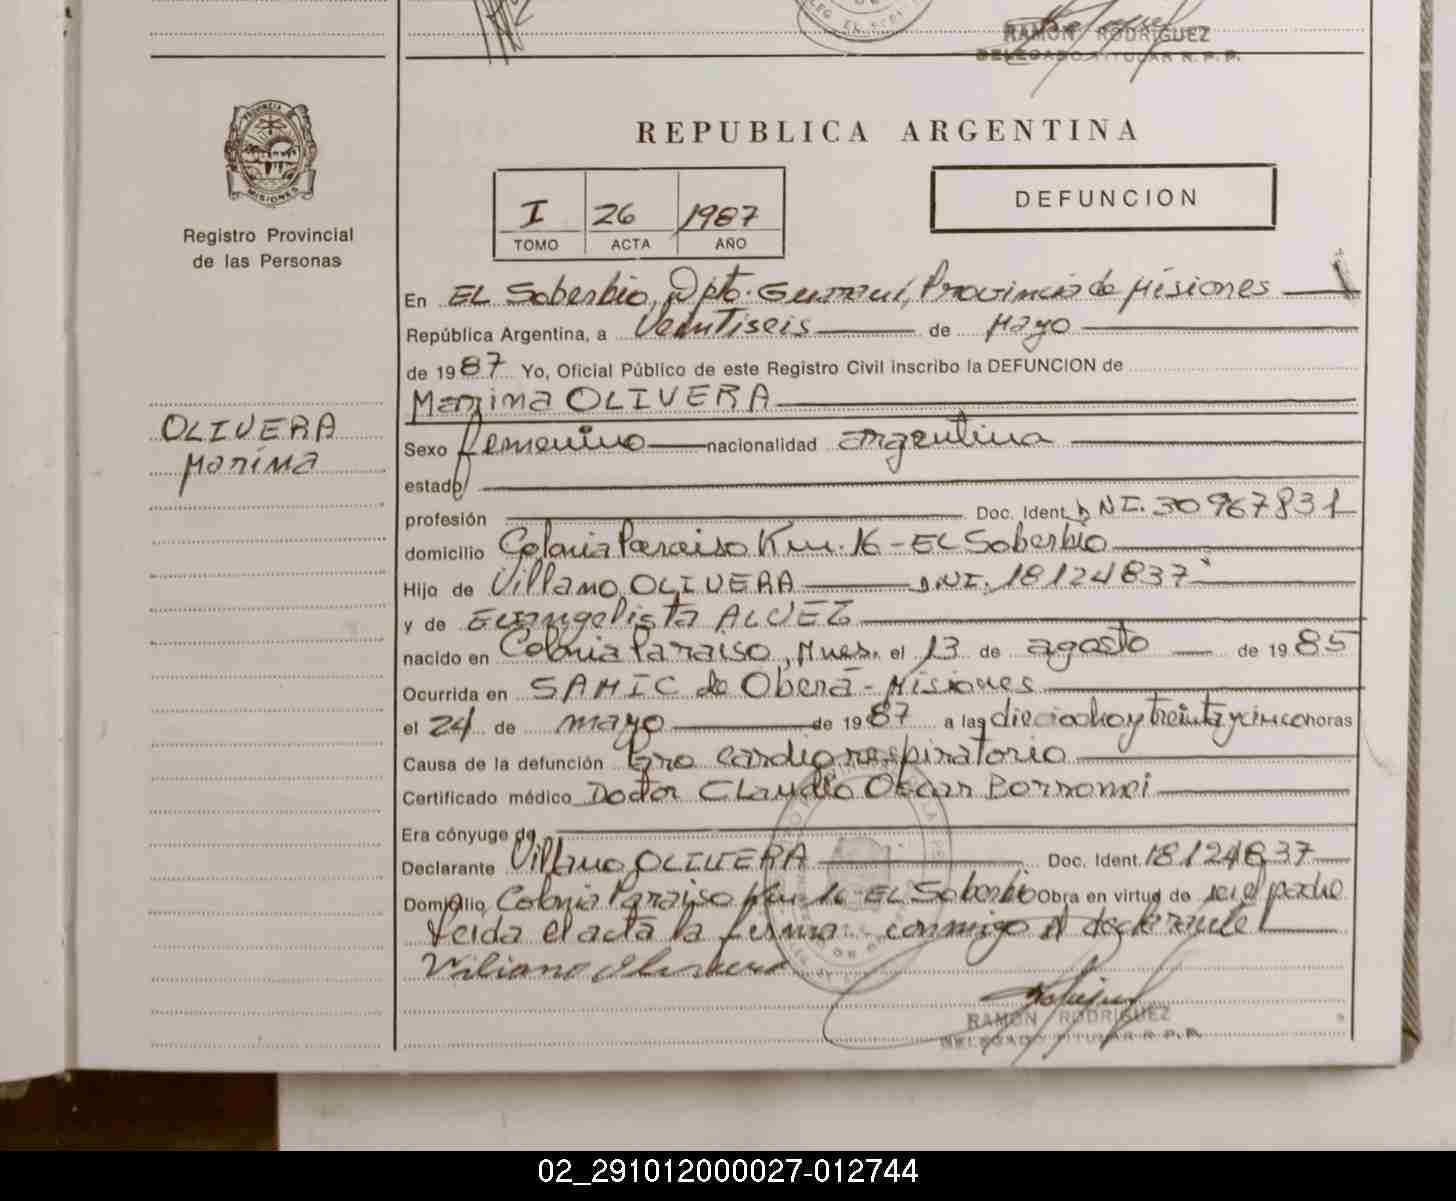 RAMON RODRIGUEZ
DELEGADO TITULAR R.P.P.
PROVINCIA DE
MISIONES
Registro Provincial
de las Personas
OLIVERA
Marima
REPUBLICA ARGENTINA
I 26 1987
TOMO ACTA AÑO
DEFUNCION
En EL Soberbio, Dpto. Guarani, Provincia de Misiones
República Argentina, a Veintiseis de Mayo
de 1987 Yo, Oficial Público de este Registro Civil inscribo la DEFUNCION de
Marima OLIVERA
Sexo femenino nacionalidad argentina
estado
profesión Doc. Ident. DNI. 30967831
domicilio Colonia Paraiso Km. 16 - EL Soberbio
Hijo de Villano OLIVERA DNI. 18124837
y de Evangelista ALVEZ
nacido en Colonia Paraiso, Mnes. el 13 de agosto de 1985
Ocurrida en SAMIC de Oberá - Misiones
el 24 de mayo de 1987 a las dieciocho y treinta y cinco horas
Causa de la defunción Paro cardio respiratorio
Certificado médico Doctor Claudio Oscar Borromei
Era cónyuge de
Declarante Villano OLIVERA Doc. Ident. 18124837
Domicilio Colonia Paraiso Km 16 - EL Soberbio Obra en virtud de ser el padre
Leida el acta la firma conmigo el declarante
RAMON RODRIGUEZ
DELEGADO TITULAR R.P.P.
02_291012000027-012744